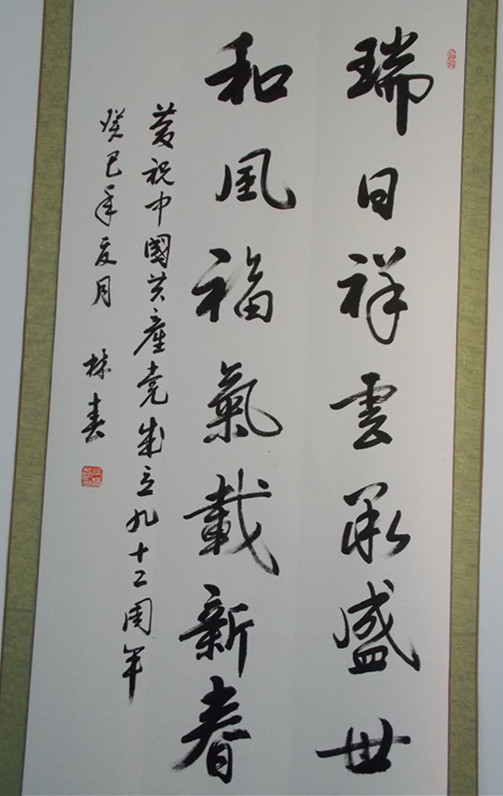 瑞日祥雲承盛世
和風福氣載新春
慶祝中國共產党成立九十二周年
癸巳年夏月 林春